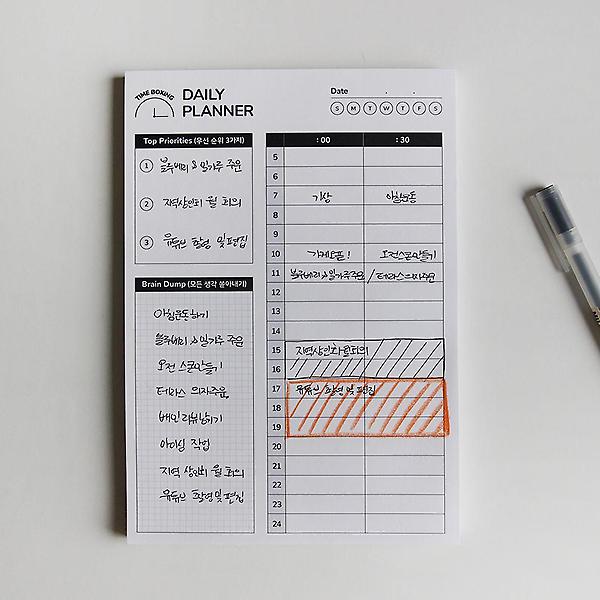 TIME BOXING
DAILY
PLANNER
Date . .
S M T W T F S
Top Priorities (우선 순위 3가지)
1 블루베리 & 밀가루 주문
2 지역상인회 월 회의
3 유튜브 촬영 및 편집
Brain Dump (모든 생각 쏟아내기)
아침운동하기
블루베리 & 밀가루 주문
오전 스콘만들기
테라스 의자주문
배민리뷰남기기
아이싱 작업
지역 상인회 월 회의
유튜브 촬영 및 편집
:00 :30
5
6
7 기상 아침운동
8
9
10 가게오픈! 오전스콘만들기
11 블루베리&밀가루주문 / 테라스의자주문
12
13
14
15 지역상인회월회의
16
17 유튜브 촬영 및 편집
18
19
20
21
22
23
24